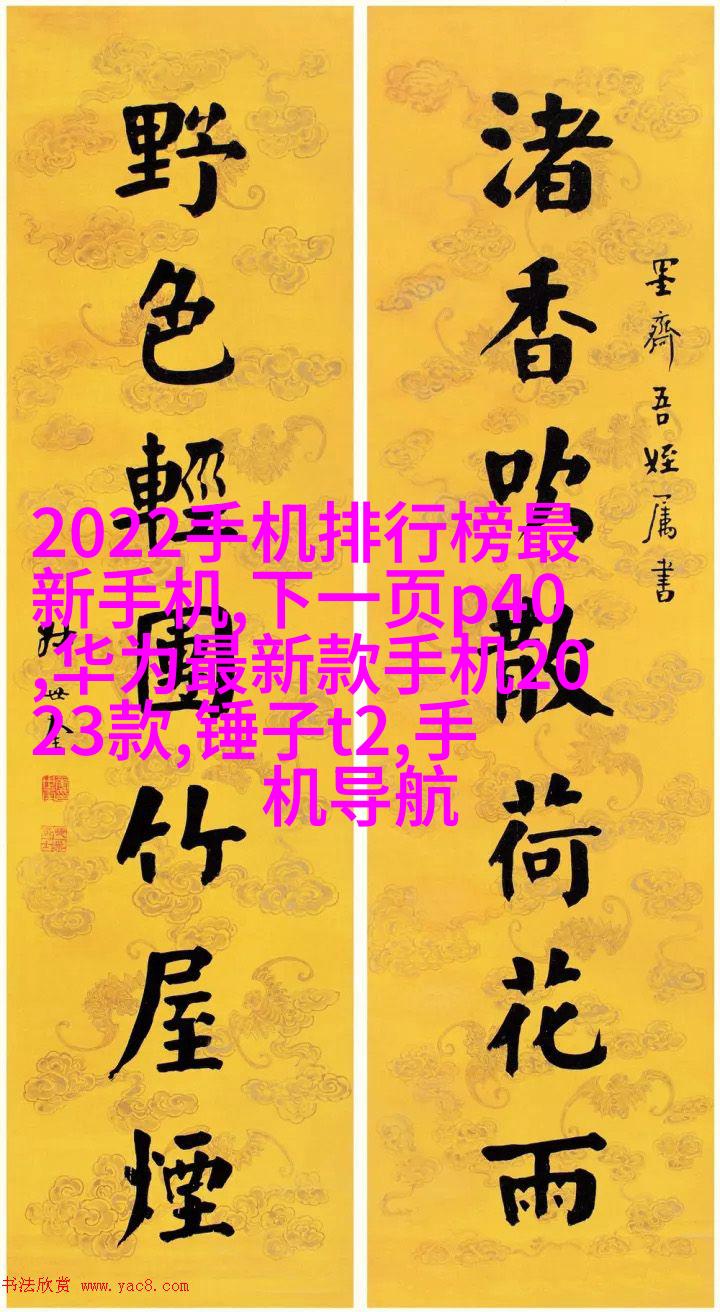 渚香吹散荷花雨
墨齋吾姪属書
野色輕圍竹屋煙
世奎
2022手机排行榜最
新手机,下一页p40
,华为最新款手机20
23款,锤子t2,手
机导航
书法欣赏 www.yac8.com